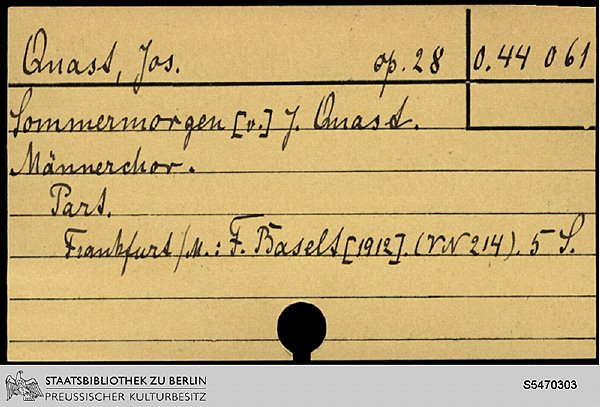 Quast, Jos. op. 28 O.44 061
Sommermorgen [v.] J. Quast.
Männerchor.
Part.
Frankfurt/M.: F. Baselt [1912]. (VN 214). 5 S.
STAATSBIBLIOTHEK ZU BERLIN
PREUSSISCHER KULTURBESITZ
S5470303